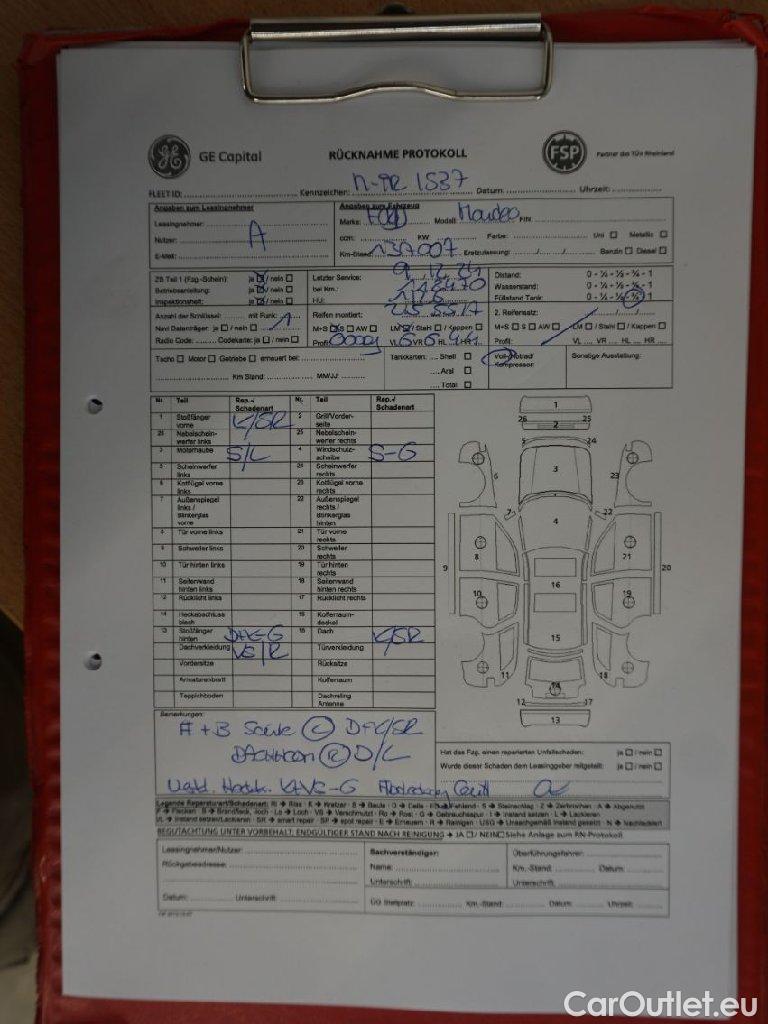 GE Capital
RÜCKNAHME PROTOKOLL
FSP
Partner des TÜV Rheinland
FLEET ID: Kennzeichen: Datum: Uhrzeit:
Angaben zum Leasingnehmer
Angaben zum Fahrzeug
Leasingnehmer:
Marke: Ford Modell: Mondeo FIN
Nutzer: A
ccm: KW Farbe: Uni Metallic
E-Mail:
Km-Stand: 137007 Erstzulassung: Benzin Diesel
ZB Teil 1 (Fzg.-Schein): ja / nein
Letzter Service:
Distand: 0 - ¼ - ½ - ¾ - 1
Betriebsanleitung: ja / nein
bei Km.:
Wasserstand: 0 - ¼ - ½ - ¾ - 1
Inspektionsheft: ja / nein
HU:
Füllstand Tank: 0 - ¼ - ½ - ¾ - 1
Anzahl der Schlüssel: mit Funk: 1
Reifen montiert:
2. Reifensatz:
Navi Datenträger: ja / nein
M+S S AW LM / Stahl / Kappen
M+S S AW LM / Stahl / Kappen
Radio Code: Codekarte: ja / nein
Profil: VL 6 VR 6 HL 4 HR
Profil: VL VR HL HR
Tacho Motor Getriebe erneuert bei:
Tankkarten: Shell
Aral
Total
Voll-/Notrad/
Kompressor:
Sonstige Ausstattung:
Km Stand: MM/JJ:
Nr. Teil Rep.-/ Schadenart Nr. Teil Rep.-/ Schadenart
1 Stoßfänger vorne K/SR 2 Grill/Vorder-seite
26 Nebelschein-werfer links 25 Nebelschein-werfer rechts
3 Motorhaube S/L 4 Windschutz-scheibe S-G
5 Scheinwerfer links 24 Scheinwerfer rechts
6 Kotflügel vorne links 23 Kotflügel vorne rechts
7 Außenspiegel links / Blinkerglas vorne 22 Außenspiegel rechts / Blinkerglas hinten
8 Tür vorne links 21 Tür vorne rechts
9 Schweller links 20 Schweller rechts
10 Tür hinten links 19 Tür hinten rechts
11 Seitenwand hinten links 18 Seitenwand hinten rechts
12 Rücklicht links 17 Rücklicht rechts
14 Heckabschluss blech 15 Kofferraum-deckel
13 Stoßfänger hinten 16 Dach K/SR
Dachverkleidung VS/R Türverkleidung
Vordersitze Rücksitze
Armaturenbrett Kofferraum
Teppichboden Dachreling Antenne
1
26 25
2
5 24
3
6 23
7 22
4
8 21
9 20
16
10 19
15
11 18
14
12 17
13
Bemerkungen:
A + B Säule
Hat das Fzg. einen reparierten Unfallschaden: ja / nein
Wurde dieser Schaden dem Leasinggeber mitgeteilt: ja / nein
BEGUTACHTUNG UNTER VORBEHALT, ENDGÜLTIGER STAND NACH REINIGUNG → JA / NEIN Siehe Anlage zum RN-Protokoll
Leasingnehmer/Nutzer:
Sachverständiger:
Überführungsfahrer:
Rückgabeadresse:
Name:
Km.-Stand: Datum:
Unterschrift:
Unterschrift:
Datum: Unterschrift:
GG Stellplatz: Km.-Stand: Datum: Uhrzeit:
CarOutlet.eu